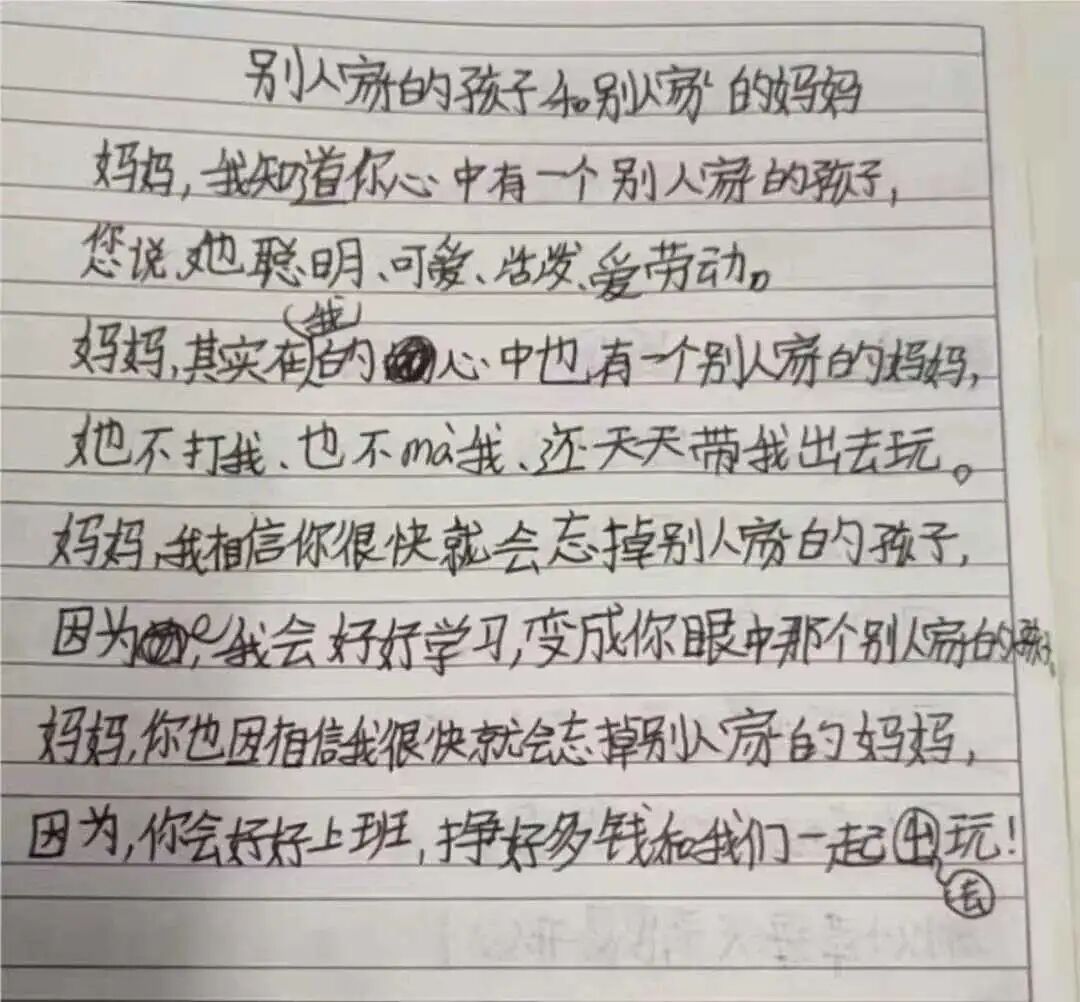 别人家的孩子和别人家的妈妈
妈妈,我知道你心中有一个别人家的孩子,
您说她聪明、可爱、活泼、爱劳动。
妈妈,其实在(我)的心中也有一个别人家的妈妈,
她不打我、也不mà我、还天天带我出去玩。
妈妈,我相信你很快就会忘掉别人家的孩子,
因为,我会好好学习,变成你眼中那个别人家的孩子。
妈妈,你也因相信我很快就会忘掉别人家的妈妈,
因为,你会好好上班,挣好多钱和我们一起出去玩!